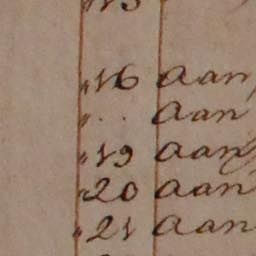 „ 16 Aan
„ . . Aan
„ 19 Aan
„ 20 Aan
„ 21 Aan